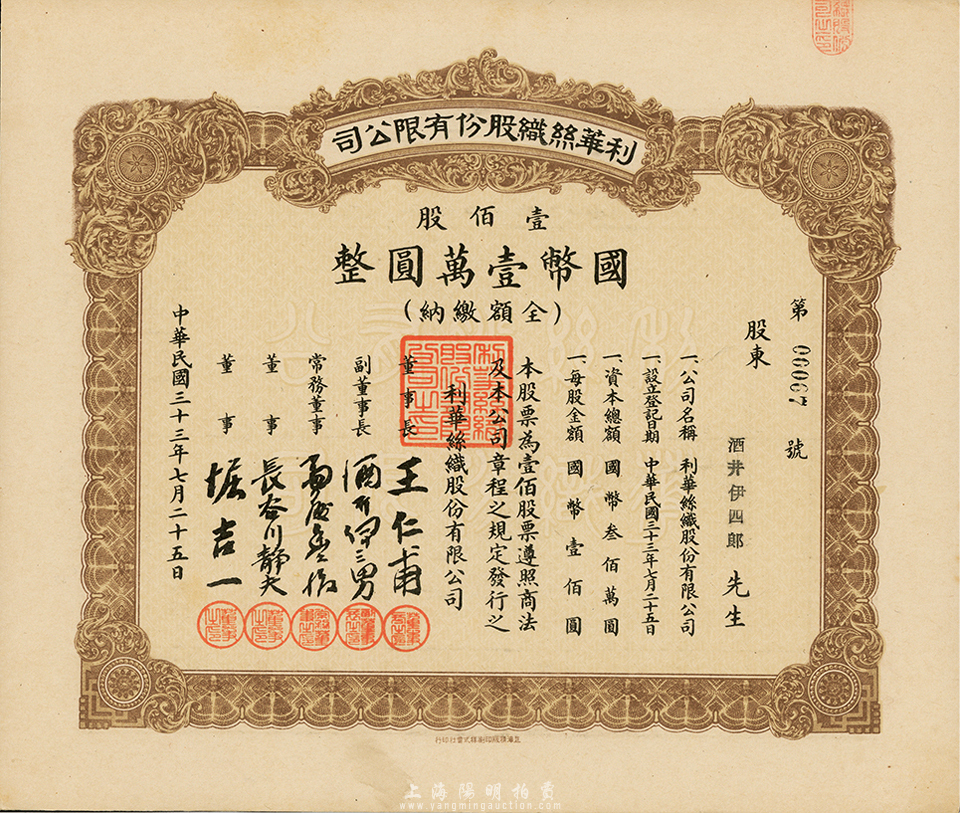 利華絲織股份有限公司
壹佰股
國幣壹萬圓整
(全額繳納)
第 00067 號
股東 酒井伊四郎 先生
一、公司名稱 利華絲織股份有限公司
一、設立登記日期 中華民國三十三年七月二十五日
一、資本總額 國幣叁佰萬圓
一、每股金額 國幣壹佰圓
本股票為壹佰股票遵照商法
及本公司章程之規定發行之
利華絲織股份有限公司
董事長 王仁甫
副董事長 酒井伊三男
常務董事
董事 長谷川靜夫
董事 堀吉一
中華民國三十三年七月二十五日
上海陽明拍賣
www.yangmingauction.com